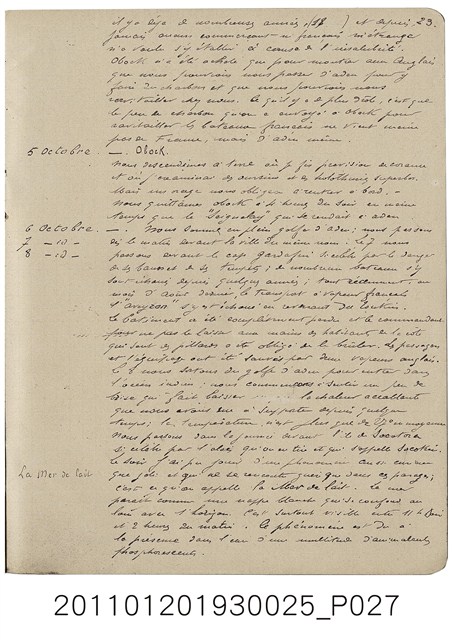 il y a déjà de nombreuses années, (18    ) et depuis, 23.
jamais aucun commerçant ni français ni étranger
n'a voulu s'y établir à cause de l'insalubrité.
Obock n'a été acheté que pour montrer aux Anglais
que nous pouvions nous passer d'aden pour y
faire du charbon et que nous pouvions nous
ravitailler chez nous. Ce qu'il y a de plus drôle, c'est que
le peu de charbon qu'on a envoyé à Obock pour
ravitailler les bateaux français ne vient même
pas de France, mais d'aden même.
5 Octobre. — Obock.
Nous descendîmes à terre où je fis provision de coraux
et où j'examinai des oursins et des holothuries superbes.
Mais un orage nous obligea à rentrer à bord. —
Nous quittâmes Obock à 4 heures du soir en même
temps que le "Seignelay" qui se rendait à aden
6 Octobre. — Nous sommes en plein golfe d'aden; nous passons
7 — id —
8 — id —
passons devant le cap Gardafui si célèbre par le danger
de ses bancs et de ses tempêtes; de nombreux bateaux s'y
sont échoués depuis quelques années; tout récemment, au
mois d'août dernier, le transport à vapeur français
l'"aveyron" s'y est échoué en revenant du Tonkin.
Le bâtiment a été complètement perdu et le commandant
pour ne pas le laisser aux mains des habitants de la côte
qui sont des pillards a été obligé de le brûler. Les passagers
et l'équipage ont été sauvés par deux vapeurs anglais.
Le 8 nous sortons du golfe d'aden pour entrer dans
l'océan indien; nous commençons à sentir un peu de
brise qui fait baisser la chaleur accablante
que nous avions eue à supporter depuis quelque
temps; la température n'est plus que de 30° en moyenne
Nous passons dans la journée devant l'île de Socotora
si célèbre par l'aloès qu'on en tire et qui s'appelle Socotrin.
Le soir j'ai pu jouir d'un phénomène aussi curieux
que joli et qui ne se rencontre guère que dans ces parages;
La Mer de lait
c'est ce qu'on appelle la Mer de lait. La mer
paraît comme une nappe blanche qui se confond au
loin avec l'horizon. C'est surtout visible entre 11 h du soir
et 2 heures du matin. Ce phénomène est dû à
la présence dans l'eau d'une multitude d'animalcules
phosphorescents.
201101201930025_P027